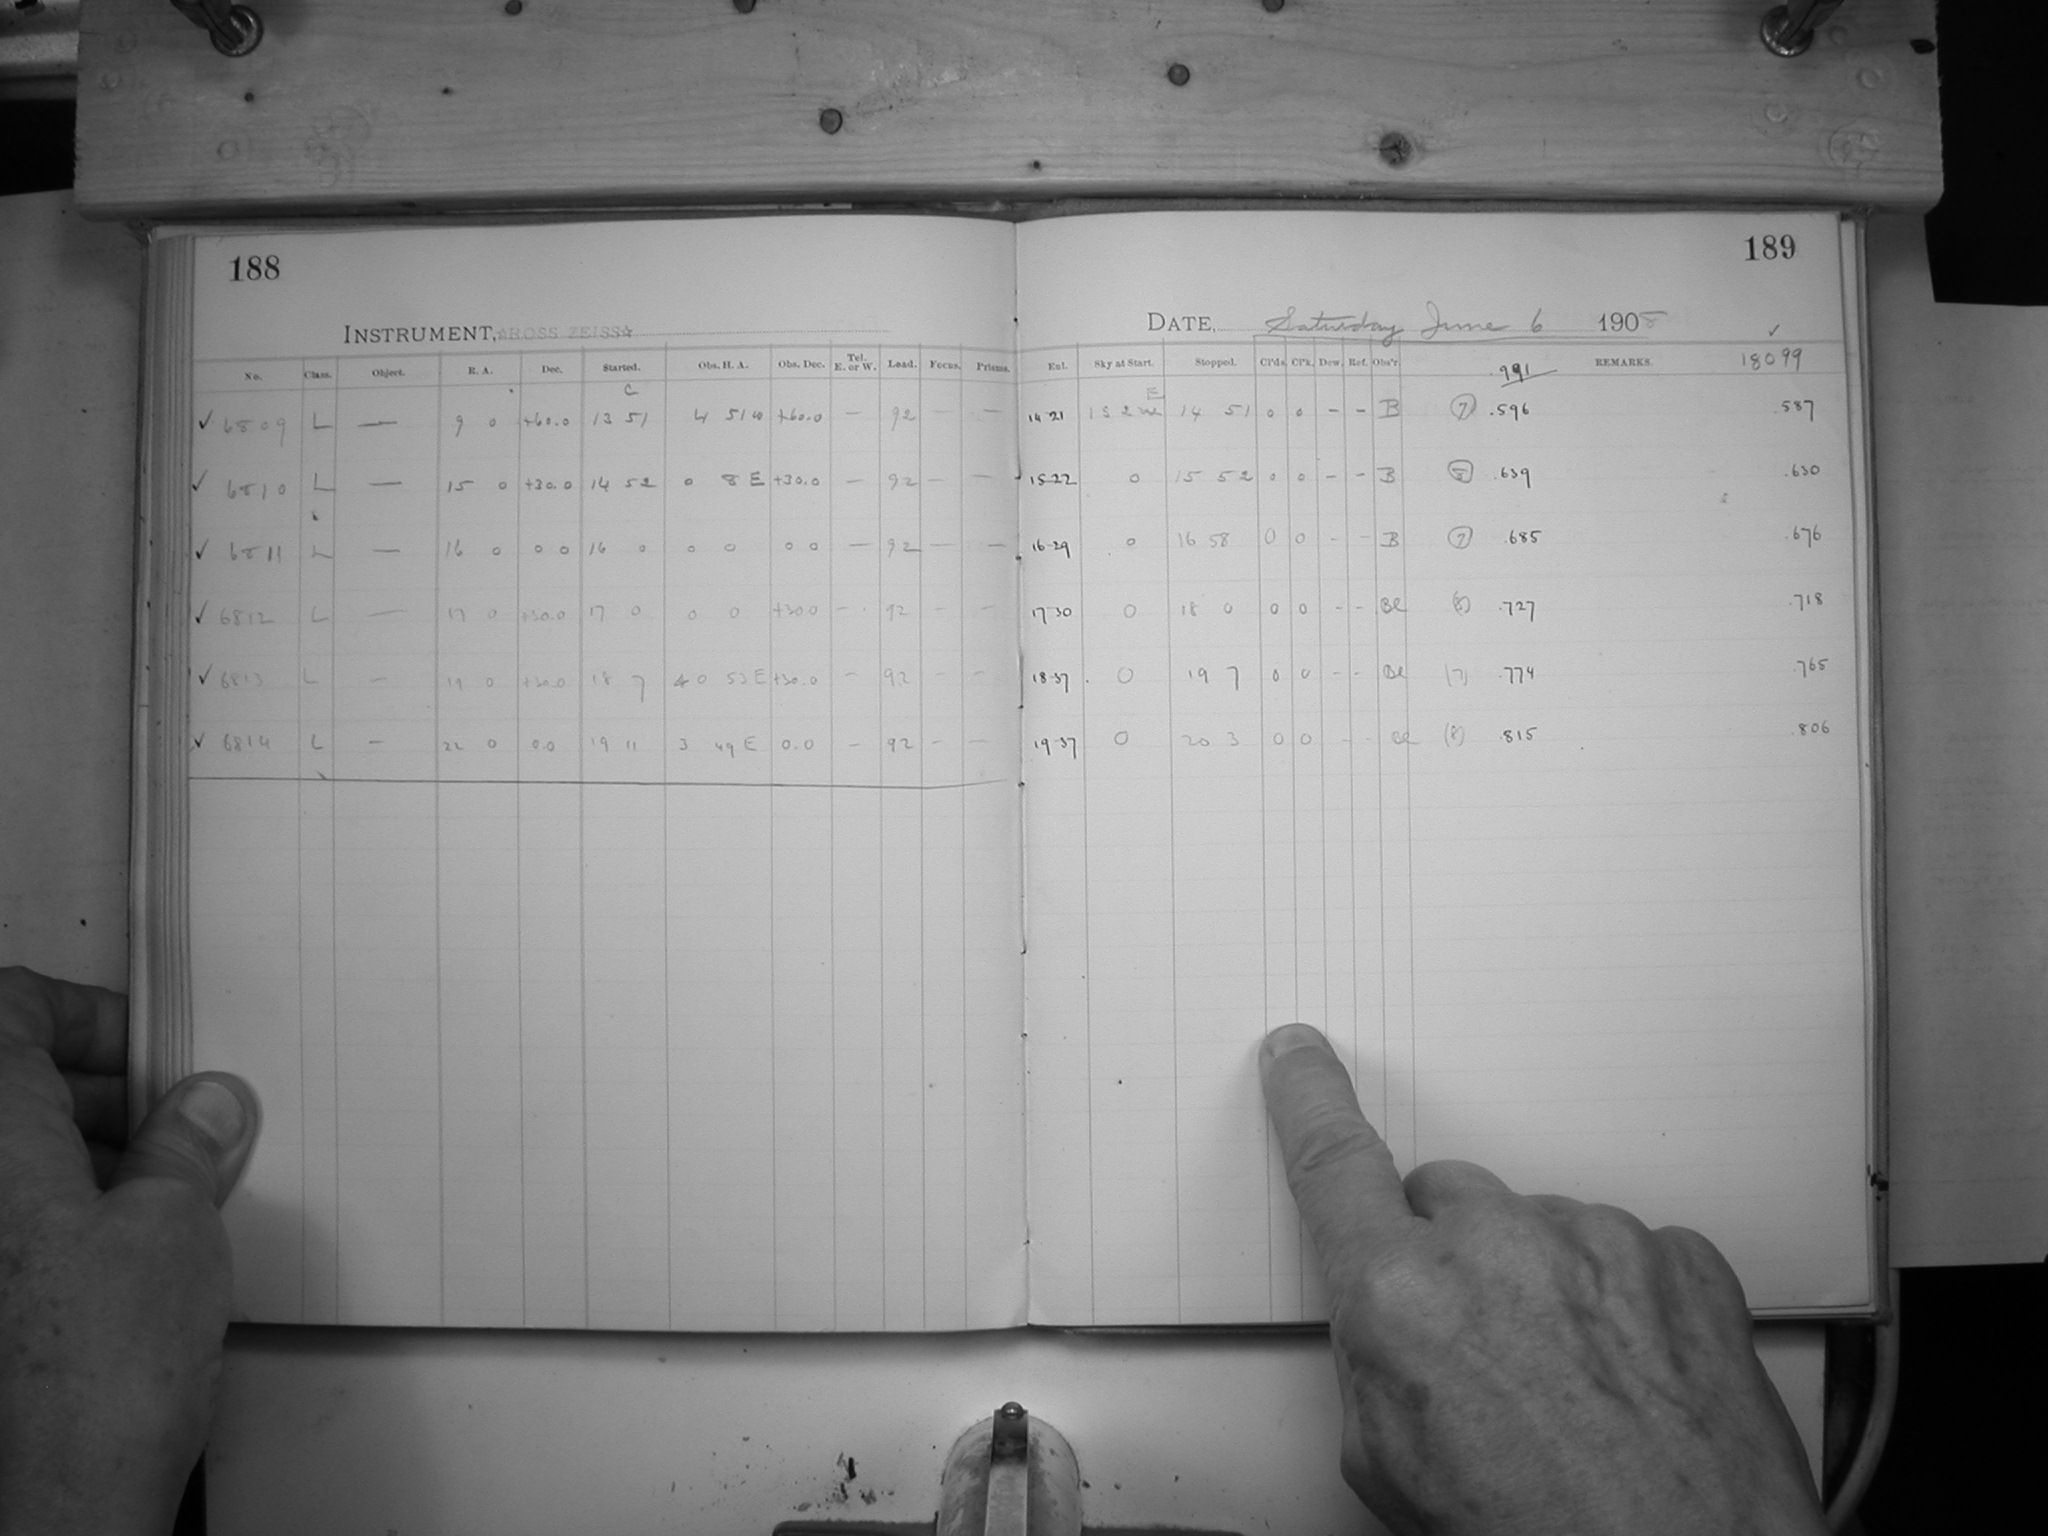 188
189
INSTRUMENT, ROSS ZEISS
DATE, Saturday June 6 1908
No. Class. Object. R. A. Dec. Started. Obs. H. A. Obs. Dec. Tel. E. or W. Load. Focus. Prisms. Enl. Sky at Start. Stopped. Cl'ds. Cl'k. Dew. Ref. Obs'r. .991 REMARKS. 18099
✓ 6809 L — 9 0 +60.0 13 51 4 51 W +60.0 — 92 — — 14 21 14 51 0 0 - - B (7) .596 .587
✓ 6810 L — 15 0 +30.0 14 52 0 8 E +30.0 — 92 — — 15 22 0 15 52 0 0 - - B (8) .639 .630
✓ 6811 L — 16 0 0 0 16 0 0 0 0 0 — 92 — — 16 29 0 16 58 0 0 - - B (7) .685 .676
✓ 6812 L — 17 0 +30.0 17 0 0 0 +30.0 — 92 — — 17 30 0 18 0 0 0 - - Bl (8) .727 .718
✓ 6813 L — 19 0 +30.0 18 7 0 53 E +30.0 — 92 — — 18 37 0 19 7 0 0 - - Bl (7) .774 .765
✓ 6814 L — 22 0 0.0 19 11 3 49 E 0.0 — 92 — — 19 37 0 20 3 0 0 - - Bl (8) .815 .806